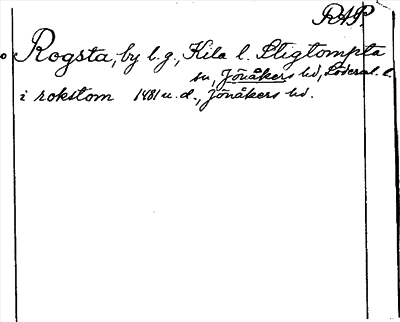 RAP.
Rogsta, by l. g., Kila l. Stigtompta
sn, Jönåkers hd, Söderm. l.
i rokstom 1481 u. d., Jönåkers hd.